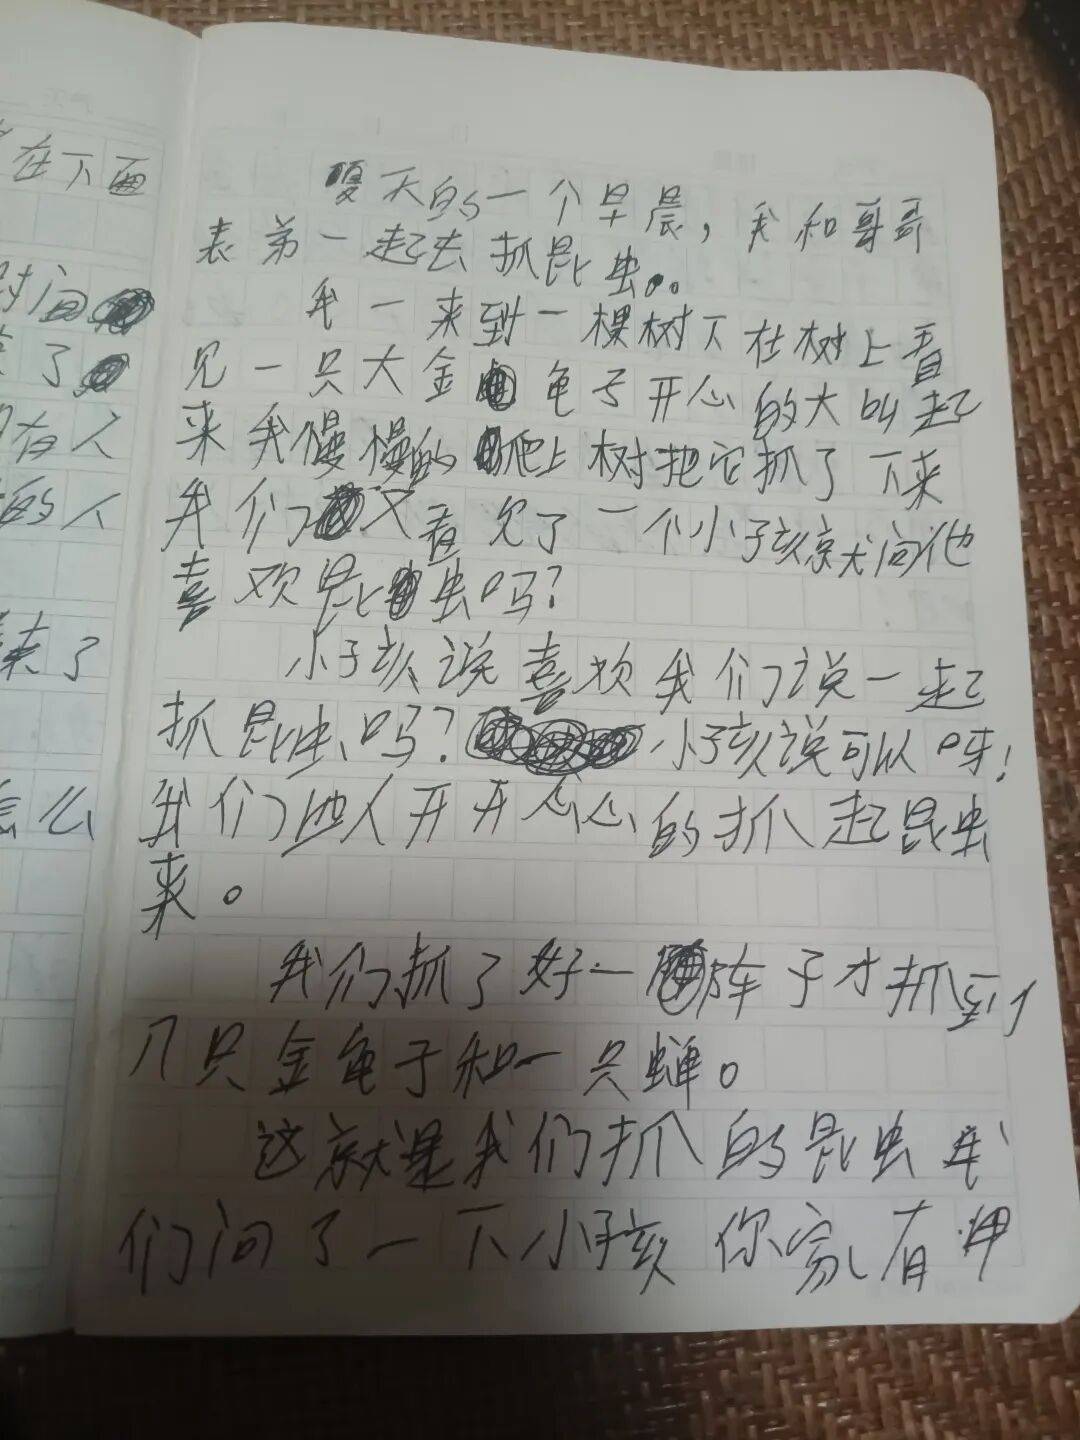 在下面
时间
了
有人
的人
来了
怎么
夏天的一个早晨，我和哥哥
表弟一起去抓昆虫。
我一来到一棵树下在树上看
见一只大金龟子开心的大叫起
来我慢慢的爬上树把它抓了下来
我们又看见了一个小孩就问他
喜欢昆虫吗？
小孩说喜欢我们说一起
抓昆虫吗？小孩说可以呀！
我们四人开开心心的抓起昆虫
来。
我们抓了好一阵子才抓到
几只金龟子和一只蝉。
这就是我们抓的昆虫我
们问了一下小孩你家有